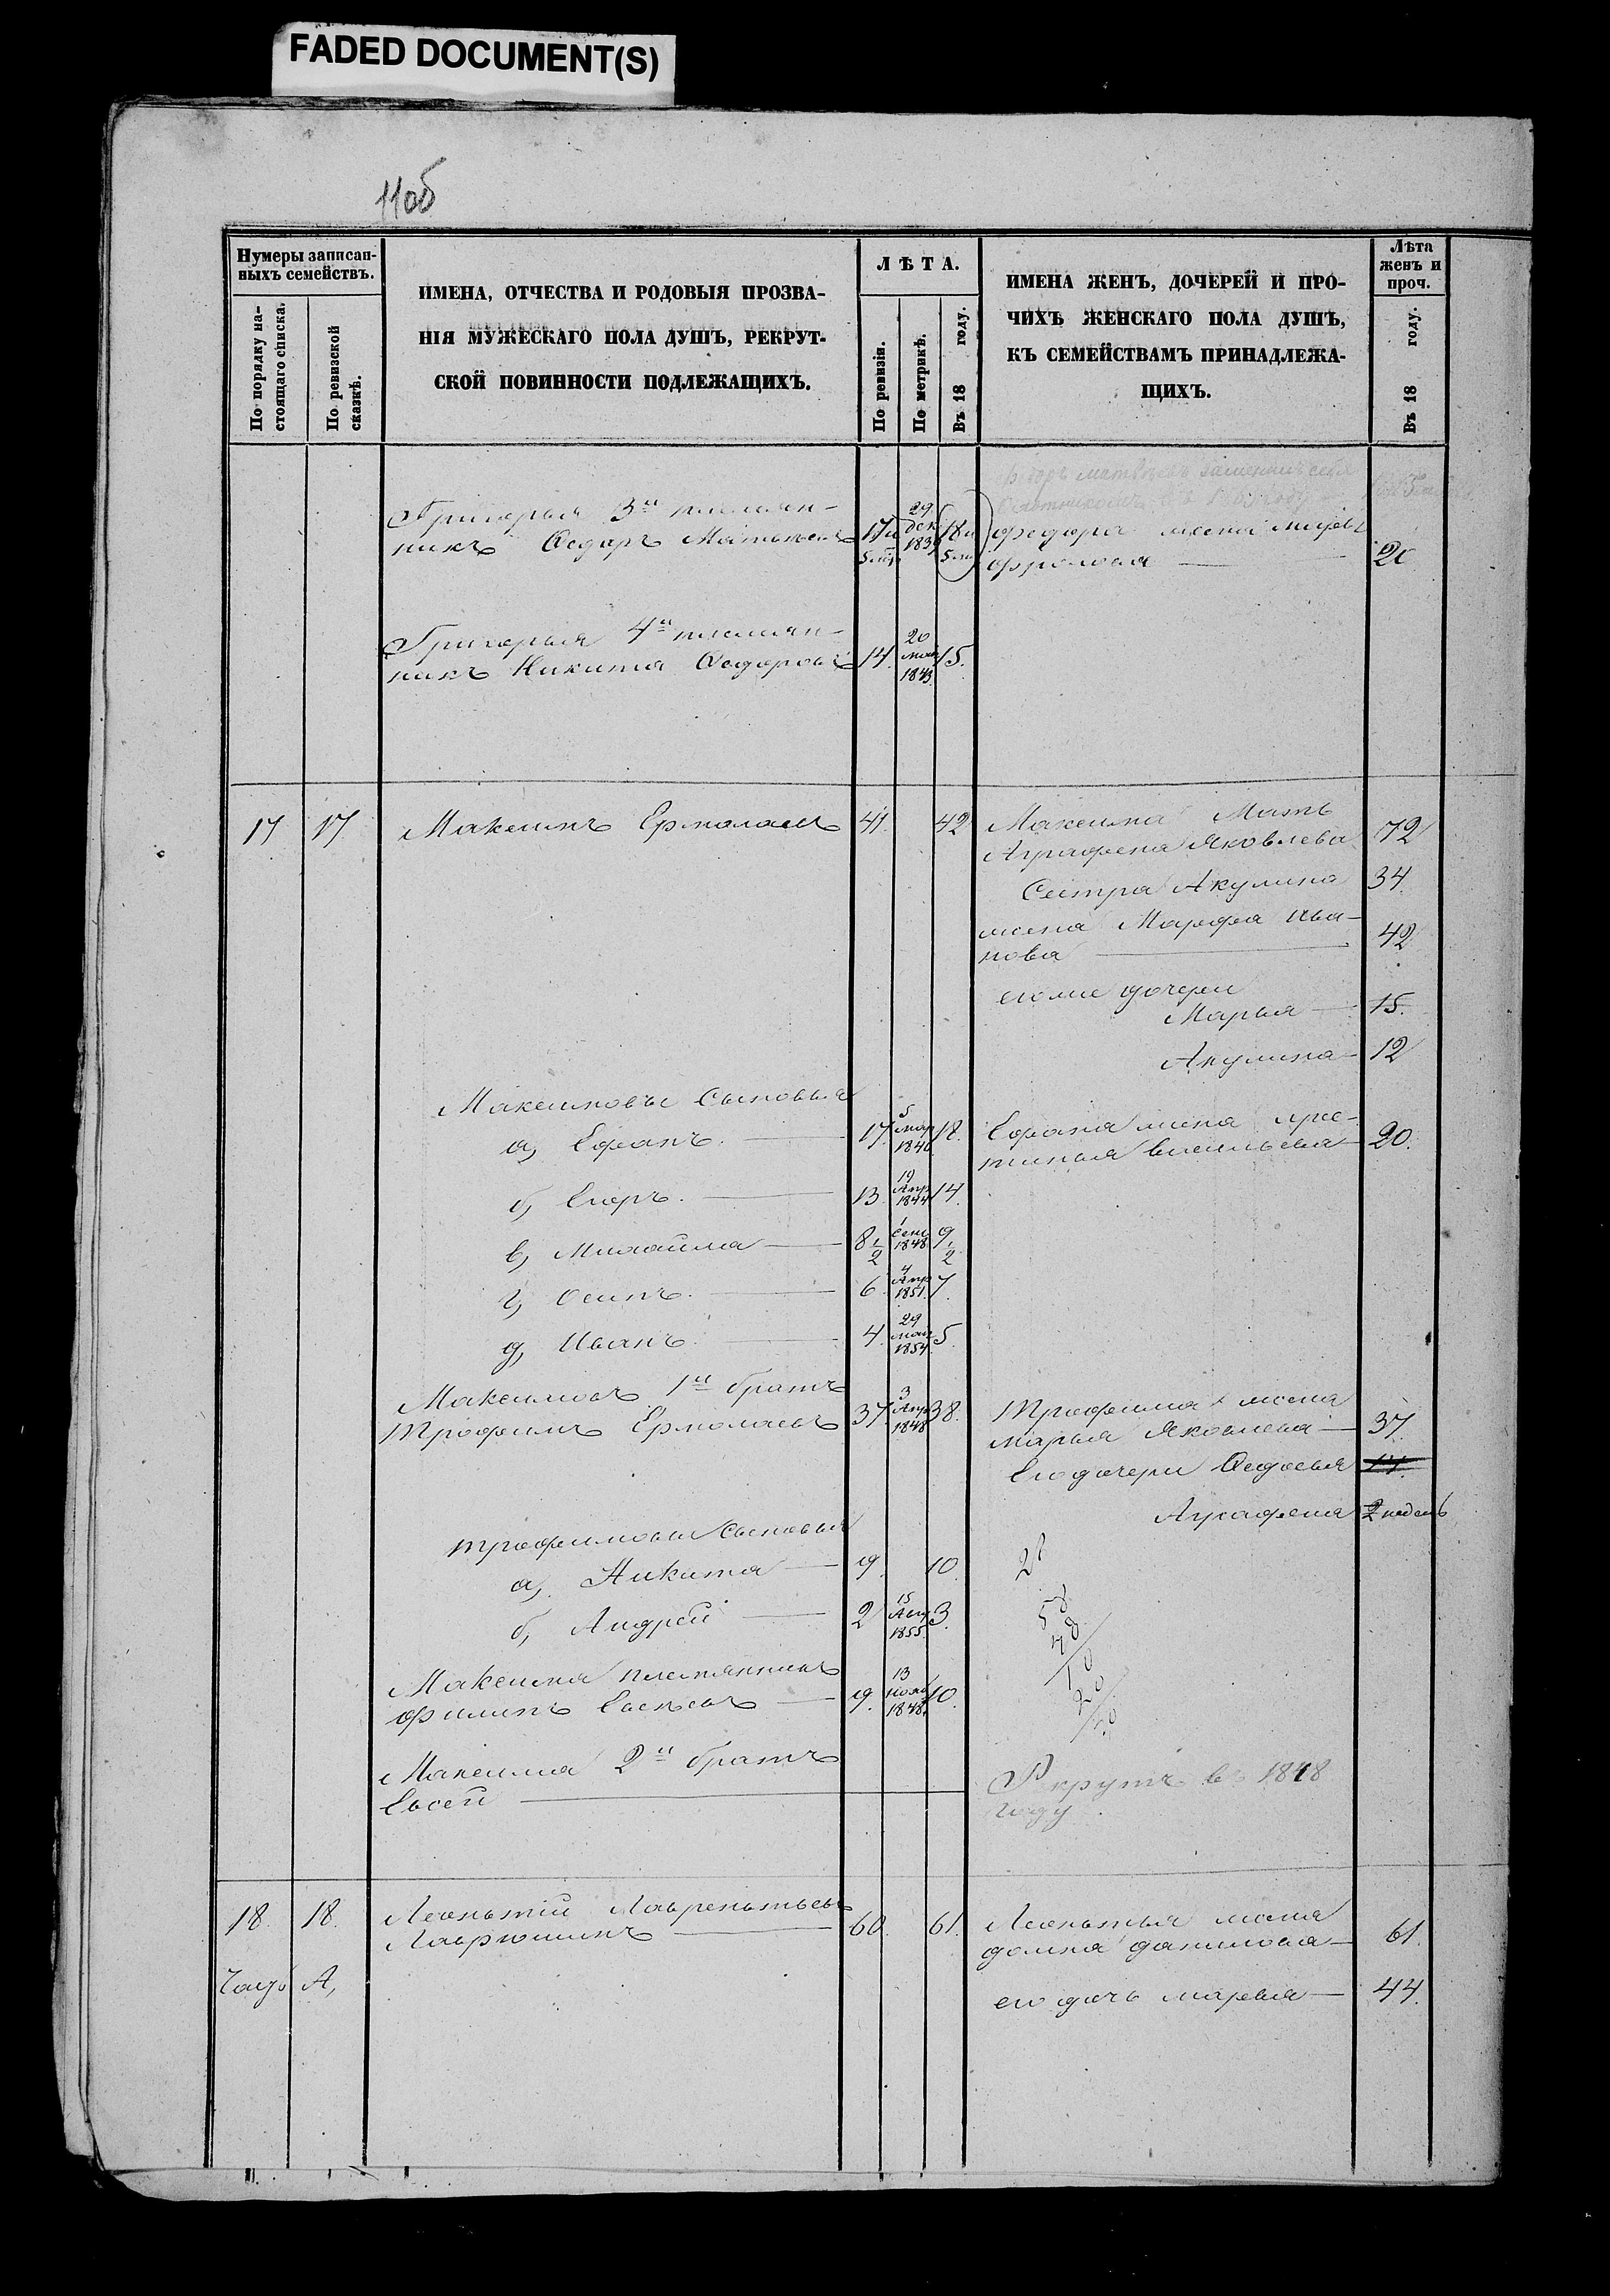 FADED DOCUMENT(S)
11об
Нумеры записан-
ныхъ семействъ.
По порядку на-
стоящаго списка.
По ревизской
сказкѣ.
ИМЕНА, ОТЧЕСТВА И РОДОВЫЯ ПРОЗВА-
НІЯ МУЖЕСКАГО ПОЛА ДУШЪ, РЕКРУТ-
СКОЙ ПОВИННОСТИ ПОДЛЕЖАЩИХЪ.
ЛѢТА.
По ревизіи.
По метрикѣ.
Въ 18 году.
ИМЕНА ЖЕНЪ, ДОЧЕРЕЙ И ПРО-
ЧИХЪ ЖЕНСКАГО ПОЛА ДУШЪ,
КЪ СЕМЕЙСТВАМЪ ПРИНАДЛЕЖА-
ЩИХЪ.
Лѣта
женъ и
проч.
Въ 18 году.
Григорья 3й племян-
никъ Ѳедоръ Матвѣевъ 17 и 5 мѣ 29 дек 1839 18 и 5 мѣ
Федора жена
Фролова — 20
Григорья 4й племян-
никъ Никита Ѳедоровъ 14. 20 мая 1843 15.
17 17 Максимъ Ермолаевъ 41. 42
Максима Мать
Аграфена Яковлева 72
Сестра Акулина 34.
жена Марфа Ива-
нова — 42
его же дочери
Марья — 15.
Акулина — 12
Максимовы Сыновья
а, Ефимъ. — 17. 5 мар 1840 18.
Ефима жена Хрис-
тинья Васильева — 20.
б, Егоръ. — 13. 19 Апр 1844 14.
в, Михайла — 8 1/2 1 сен 1848 9 1/2
г, Осипъ. — 6. 4 Апр 1851. 7.
д, Иванъ. — 4. 29 мая 1854 5.
Максимовъ 1й братъ
Трофимъ Ермолаевъ 37. 3 Апр 1848 38.
Трофима жена
Марья Яковлева — 37.
Его дочери Ѳедосья
Аграфена 2 недель
Трофимовы Сыновья
а, Никита — 9. 10.
б, Андрей — 2 15 Авг 1855. 3.
Максима племянникъ
Филипъ Евсѣевъ — 9. 13 нояб 1848. 10.
Максима 2й братъ
Евсей —
Рекрутъ въ 1848
году.
18. 18. Леонтій Лаврентьевъ
Лаврюшинъ — 60. 61.
Леонтья жена
домна данилова — 61.
его дочь марья — 44.
А,